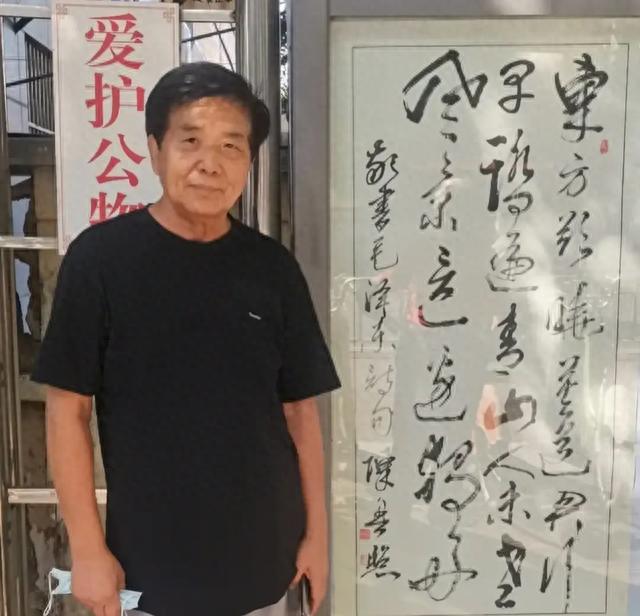 爱护公物
東方欲曉莫道君行
早踏遍青山人未老
风景這邊獨好
敬書毛泽东诗句 陳 照